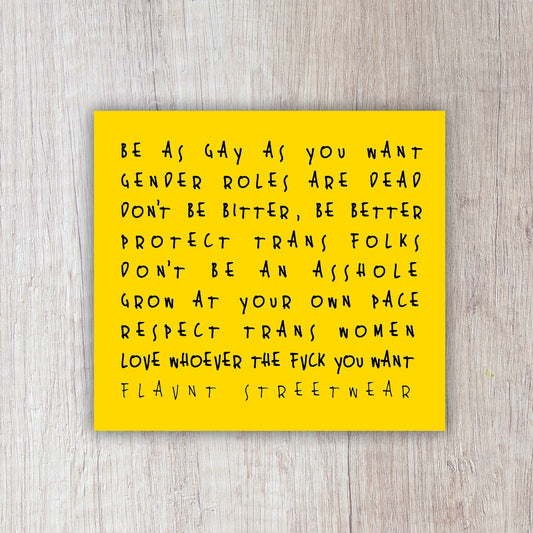 BE AS GAY AS YOU WANT
GENDER ROLES ARE DEAD
DON'T BE BITTER, BE BETTER
PROTECT TRANS FOLKS
DON'T BE AN ASSHOLE
GROW AT YOUR OWN PACE
RESPECT TRANS WOMEN
LOVE WHOEVER THE FVCK YOU WANT
FLAVNT STREETWEAR